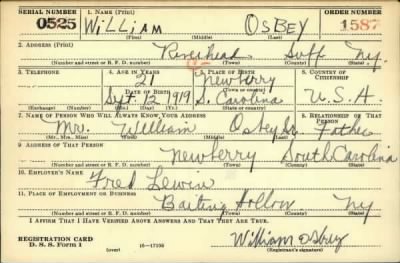 SERIAL NUMBER 1. NAME (Print) ORDER NUMBER
0525 William Osbey 1587
(First) (Middle) (Last)
2. ADDRESS (Print)
Riverhead Suff Ny.
(Number and street or R. F. D. number) (Town) (County) (State)
3. TELEPHONE 4. AGE IN YEARS 5. PLACE OF BIRTH 6. COUNTRY OF CITIZENSHIP
21 Newberry
DATE OF BIRTH (Town or county)
Sept. 12 1919 S. Carolina U.S.A.
(Exchange) (Number) (Mo.) (Day) (Yr.) (State or country)
7. NAME OF PERSON WHO WILL ALWAYS KNOW YOUR ADDRESS 8. RELATIONSHIP OF THAT PERSON
Mr. William Osbey Sr. Father
(Mr., Mrs., Miss) (First) (Middle) (Last)
9. ADDRESS OF THAT PERSON
Newberry South Carolina
(Number and street or R. F. D. number) (Town) (County) (State)
10. EMPLOYER'S NAME
Fred Lewin
11. PLACE OF EMPLOYMENT OR BUSINESS
Baiting Hollow Ny
(Number and street or R. F. D. number) (Town) (County) (State)
I AFFIRM THAT I HAVE VERIFIED ABOVE ANSWERS AND THAT THEY ARE TRUE.
REGISTRATION CARD
D. S. S. Form 1 (over) 16—17105 William Osbey
(Registrant's signature)